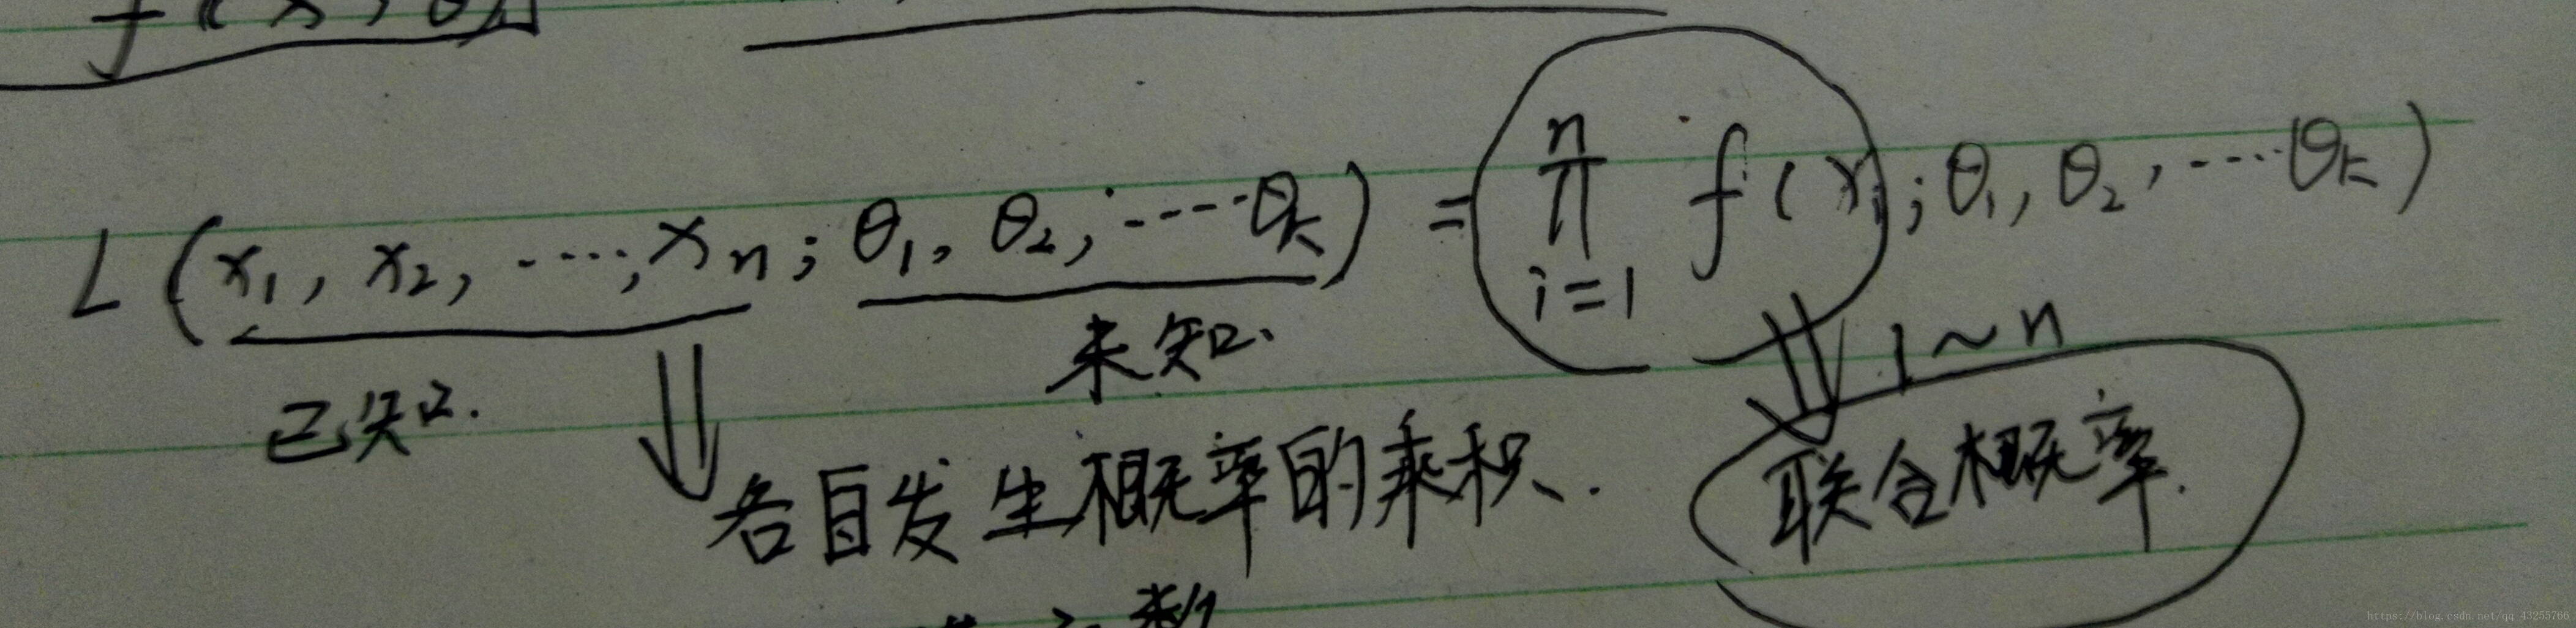 f(x, θ
L(x₁, x₂, ‥‥, xₙ; θ₁, θ₂, ‥‥θₖ) = ∏ⁿᵢ₌₁ f(xᵢ; θ₁, θ₂, ‥‥θₖ)
已知. 未知. 1~n
各自发生概率的乘积. 联合概率.
https://blog.csdn.net/qq_43255766